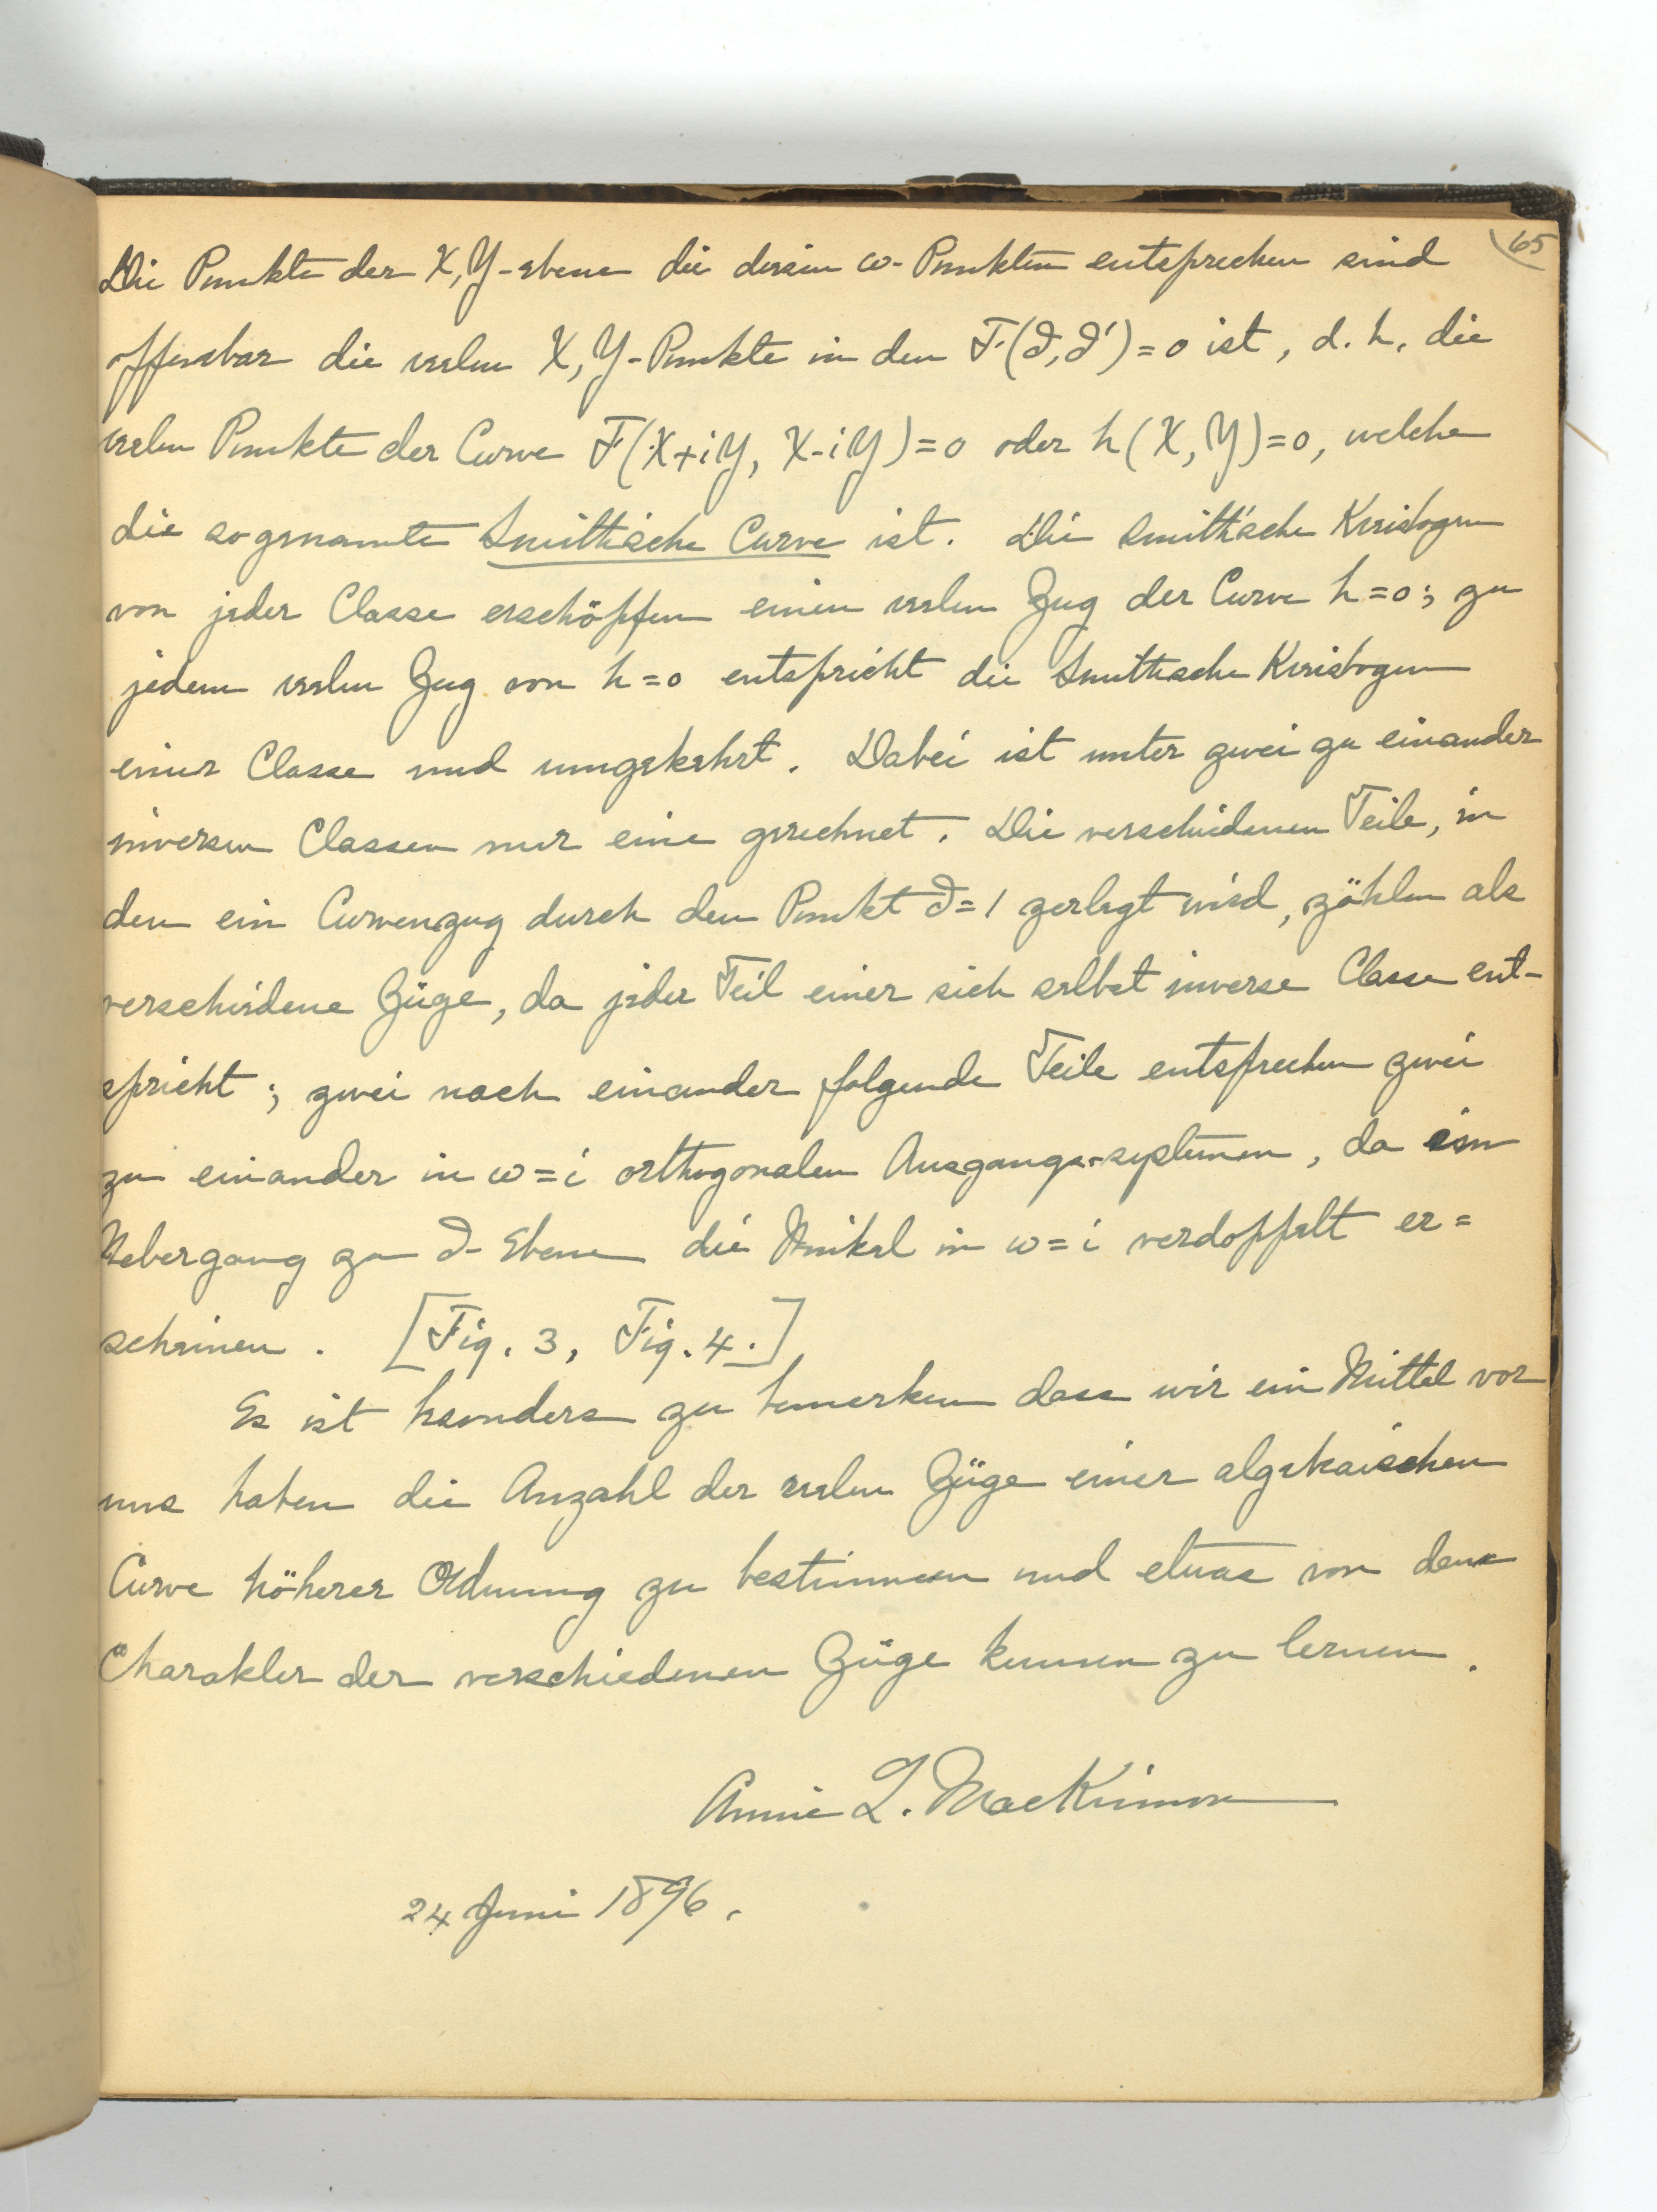 65
Die Punkte der X,Y-ebene die diesen ω-Punkten entsprechen sind
offenbar die reelen X,Y-Punkte in den F(∂,∂')=0 ist, d.h. die
reelen Punkte der Curve F(X+iY, X-iY)=0 oder h(X,Y)=0, welche
die sogenannte Smithische Curve ist. Die Smith'sche Kreisbogen
von jeder Classe erschöpfen einen reelen Zug der Curve h=0; zu
jedem reelen Zug von h=0 entspricht die Smithsche Kreisbogen
einer Classe und umgekehrt. Dabei ist unter zwei zu einander
inversen Classen nur eine gerechnet. Die verschiedenen Teile, in
den ein Curvenzug durch den Punkt ∂=1 zerlegt wird, zählen als
verschiedene Züge, da jeder Teil einer sich selbst inverse Classe ent-
spricht; zwei nach einander folgende Teile entsprechen zwei
zu einander in ω=i orthogonalen Ausgangs-systemen, da im
Uebergang zu ∂-Ebene die Winkel in ω=i verdoppelt er=
scheinen. [Fig. 3, Fig. 4.]
Es ist besonders zu bemerken dass wir ein Mittel vor
uns haben die Anzahl der reelen Züge einer algebraischen
Curve höherer Ordnung zu bestimmen und etwas von dem
Charakter der verschiedenen Züge kennen zu lernen.
Annie L. MacKinnon
24 Juni 1896.